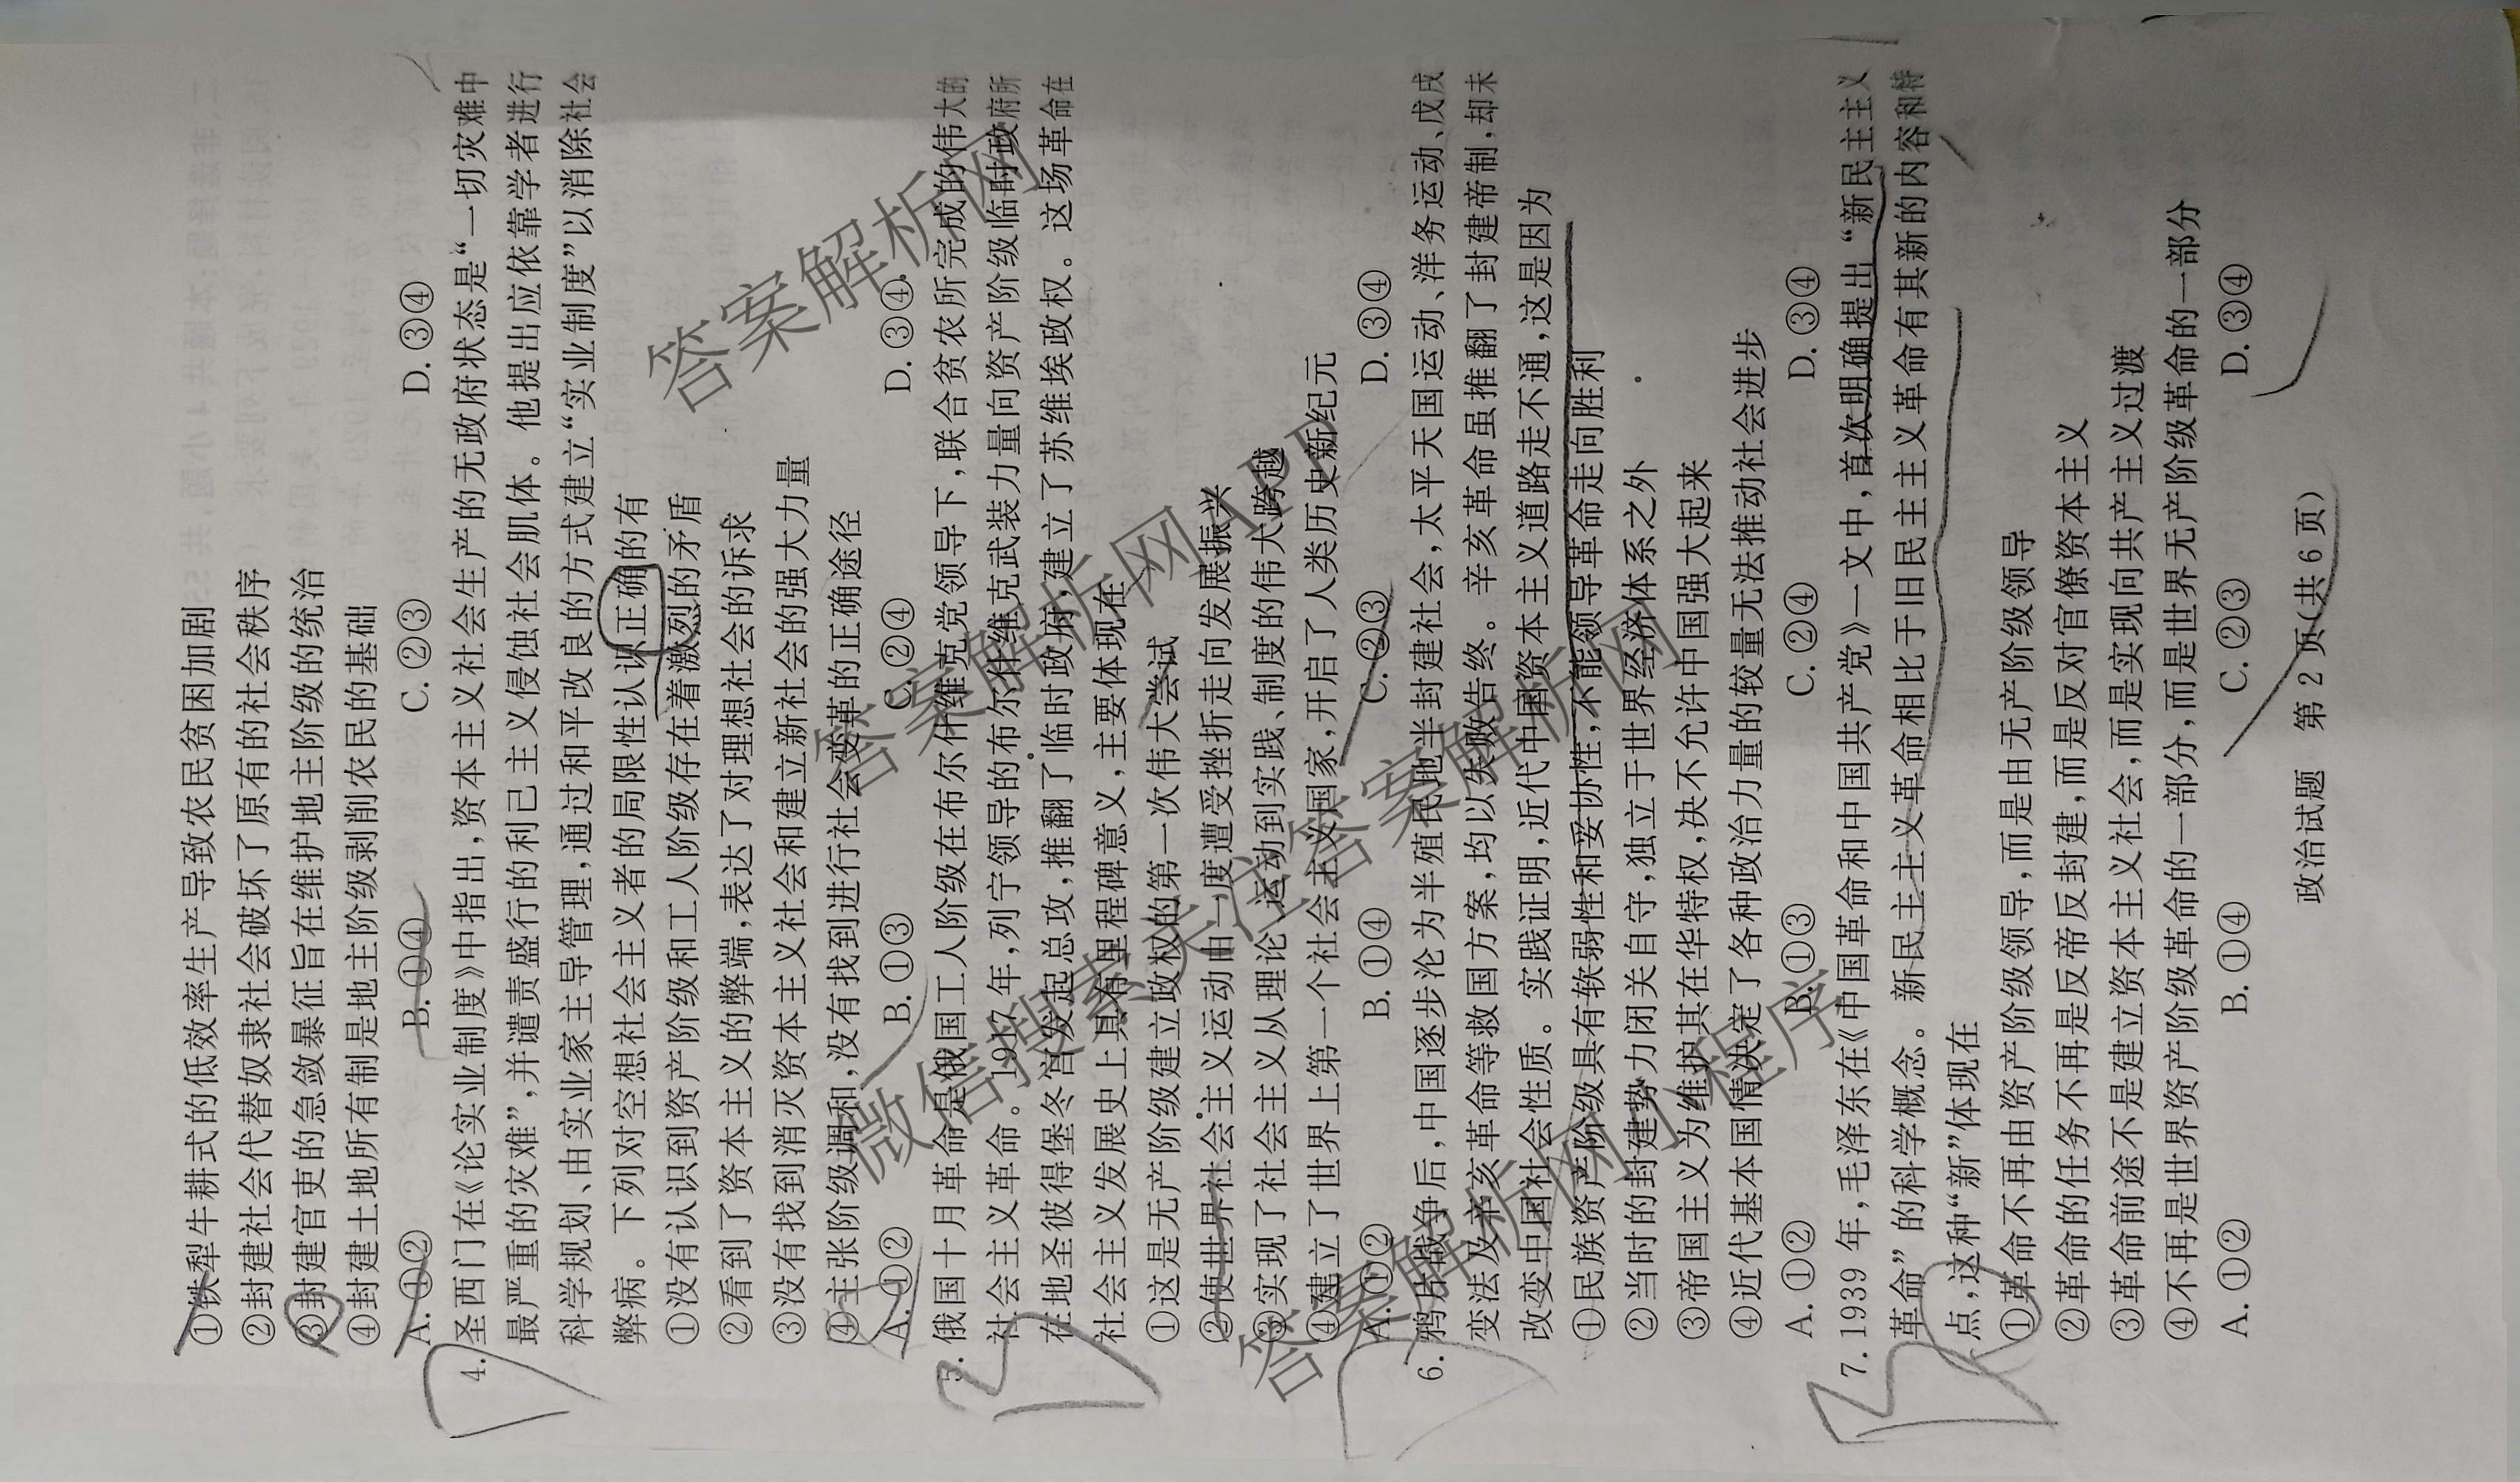 ①铁犁牛耕式的低效率生产导致农民贫困加剧
②封建社会代替奴隶社会破坏了原有的社会秩序
③封建官吏的急敛暴征旨在维护地主阶级的统治
④封建土地所有制是地主阶级剥削农民的基础
A.①② B.①④ C.②③ D.③④
4.圣西门在《论实业制度》中指出,资本主义社会生产的无政府状态是“一切灾难中
最严重的灾难”,并谴责盛行的利己主义侵蚀社会肌体。他提出应依靠学者进行
科学规划、由实业家主导管理,通过和平改良的方式建立“实业制度”以消除社会
弊病。下列对空想社会主义者的局限性认识正确的有
①没有认识到资产阶级和工人阶级存在着激烈的矛盾
②看到了资本主义的弊端,表达了对理想社会的诉求
③没有找到消灭资本主义社会和建立新社会的强大力量
④主张阶级调和,没有找到进行社会变革的正确途径
A.①② B.①③ C.②④ D.③④
5.俄国十月革命是俄国工人阶级在布尔什维克党领导下,联合贫农所完成的伟大的
社会主义革命。1917年,列宁领导的布尔什维克武装力量向资产阶级临时政府所
在地圣彼得堡冬宫发起总攻,推翻了临时政府,建立了苏维埃政权。这场革命在
社会主义发展史上具有里程碑意义,主要体现在
①这是无产阶级建立政权的第一次伟大尝试
②使世界社会主义运动由一度遭受挫折走向发展振兴
③实现了社会主义从理论、运动到实践、制度的伟大跨越
④建立了世界上第一个社会主义国家,开启了人类历史新纪元
A.①② B.①④ C.②③ D.③④
6.鸦片战争后,中国逐步沦为半殖民地半封建社会,太平天国运动、洋务运动、戊戌
变法及辛亥革命等救国方案,均以失败告终。辛亥革命虽推翻了封建帝制,却未
改变中国社会性质。实践证明,近代中国资本主义道路走不通,这是因为
①民族资产阶级具有软弱性和妥协性,不能领导革命走向胜利
②当时的封建势力闭关自守,独立于世界经济体系之外
③帝国主义为维护其在华特权,决不允许中国强大起来
④近代基本国情决定了各种政治力量的较量无法推动社会进步
A.①② B.①③ C.②④ D.③④
7.1939年,毛泽东在《中国革命和中国共产党》一文中,首次明确提出“新民主主义
革命”的科学概念。新民主主义革命相比于旧民主主义革命有其新的内容和特
点,这种“新”体现在
①革命不再由资产阶级领导,而是由无产阶级领导
②革命的任务不再是反帝反封建,而是反对官僚资本主义
③革命前途不是建立资本主义社会,而是实现向共产主义过渡
④不再是世界资产阶级革命的一部分,而是世界无产阶级革命的一部分
A.①② B.①④ C.②③ D.③④
政治试题 第2页(共6页)
答案解析网
答案解析网APP
微信搜索关注答案解析网
答案解析网小程序